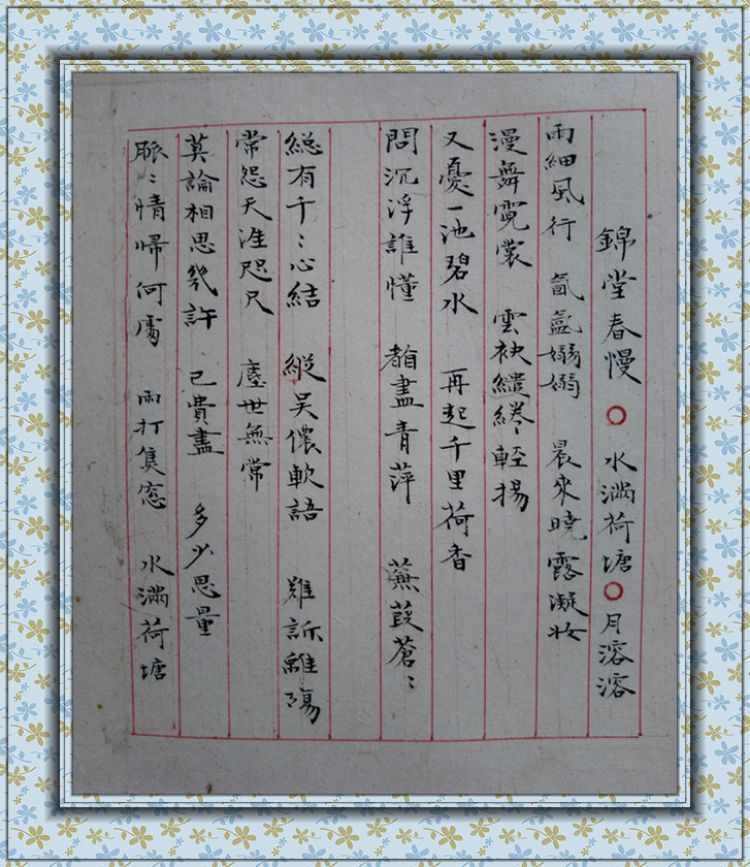 錦堂春慢○水滿荷塘○月溶溶
雨細風行 氤氳嫋嫋 晨來曉露凝妝
漫舞霓裳 雲袂繾綣輕揚
又憂一池碧水 再起千里荷香
問沉浮誰懂 黯盡青萍 蒹葭蒼〻
縂有千〻心結 縱吳儂軟語 難訴離殤
常怨天涯咫尺 塵世無常
莫論相思幾許 已費盡 多少思量
脈〻情歸何處 雨打隻窓 水滿荷塘